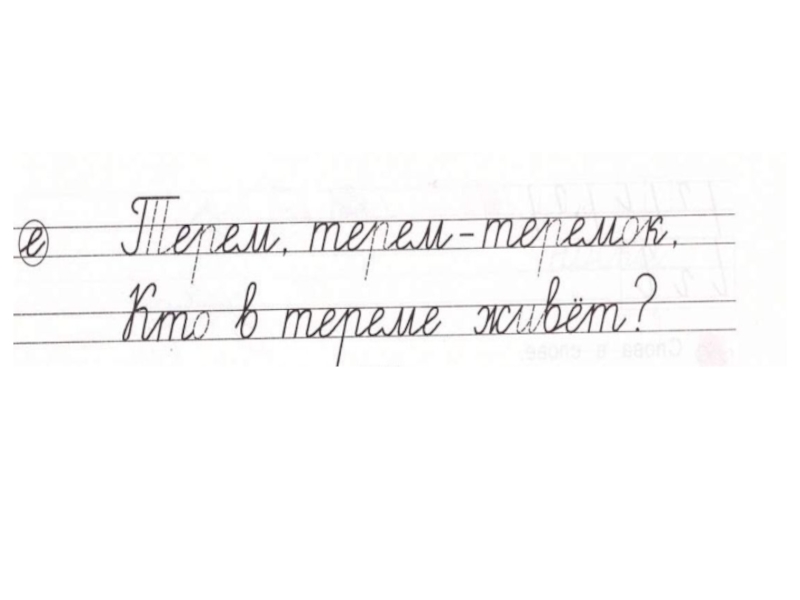 е Терем, терем-теремок,
Кто в тереме живёт?
Слова в слове